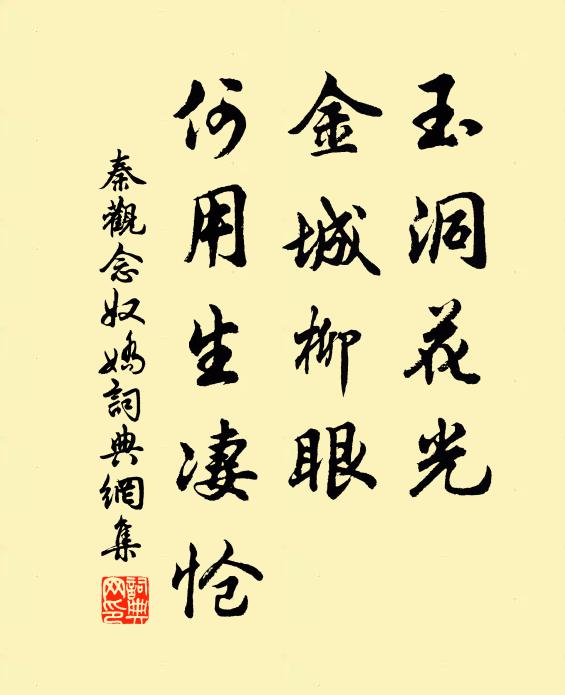 玉洞花光
金城柳眼
何用生凄怆
秦觀念奴嬌詞典網集
詞典網印